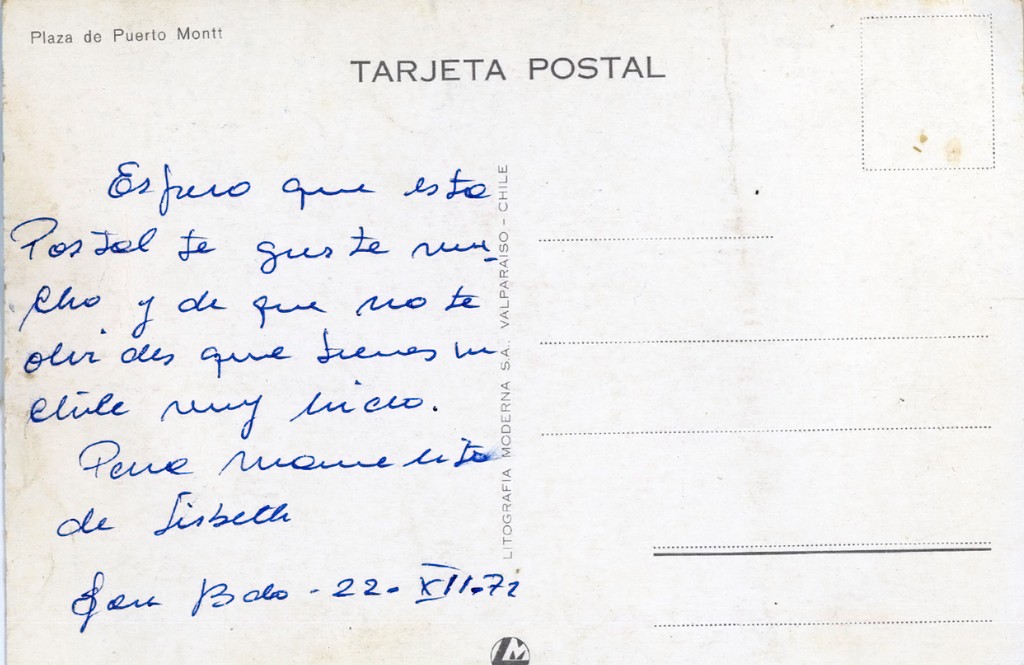 Plaza de Puerto Montt
TARJETA POSTAL
Espero que esta
Postal te guste mu-
cho y de que no te
olvides que tienes un
Chile muy
Para
de Lisbeth
San Bdo - 22 - XII-72
LITOGRAFIA MODERNA S.A., VALPARAISO - CHILE
LM